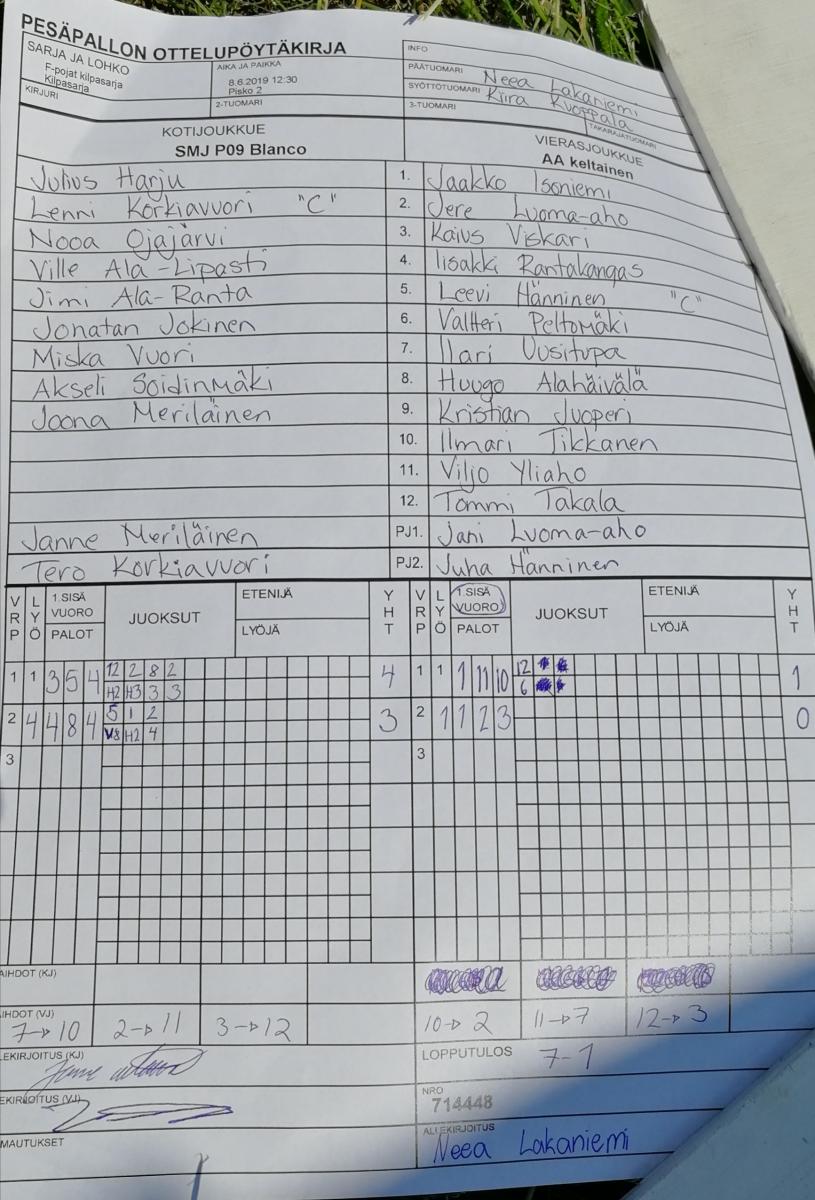 PESÄPALLON OTTELUPÖYTÄKIRJA
SARJA JA LOHKO
F-pojat kilpasarja
Kilpasarja
KIRJURI
AIKA JA PAIKKA
8.6.2019 12:30
Pisko 2
2-TUOMARI
INFO
PÄÄTUOMARI Neea Lakaniemi
SYÖTTÖTUOMARI Kiira Kuoppala
3-TUOMARI TAKARAJATUOMARI
KOTIJOUKKUE
SMJ P09 Blanco
VIERASJOUKKUE
AA keltainen
Julius Harju 1. Jaakko Isoniemi
Lenni Korkiavuori "C" 2. Jere Luoma-aho
Nooa Ojajärvi 3. Kaius Viskari
Ville Ala-Lipasti 4. Iisakki Rantakangas
Jimi Ala-Ranta 5. Leevi Hänninen "C"
Jonatan Jokinen 6. Valtteri Peltomäki
Miska Vuori 7. Ilari Uusitupa
Akseli Soidinmäki 8. Huugo Alahäivälä
Joona Meriläinen 9. Kristian Juoperi
10. Ilmari Tikkanen
11. Viljo Yliaho
12. Tommi Takala
Janne Meriläinen PJ1. Jani Luoma-aho
Tero Korkiavuori PJ2. Juha Hänninen
VRP LYÖ 1.SISÄ VUORO PALOT JUOKSUT ETENIJÄ LYÖJÄ YHT VRP LYÖ 1.SISÄ VUORO PALOT JUOKSUT ETENIJÄ LYÖJÄ YHT
1 1 3 5 4 12 2 8 2 4 1 1 1 11 10 12 1
H2 H3 3 3 6
2 4 4 8 4 5 1 2 3 2 1 1 2 3 0
V8 H2 4
3 3
AIHDOT (KJ)
AIHDOT (VJ)
7→10 2→11 3→12 10→2 11→7 12→3
LEKIRJOITUS (KJ) LOPPUTULOS 7-1
EKIRJOITUS (VJ) NRO
714448
MAUTUKSET ALLEKIRJOITUS
Neea Lakaniemi